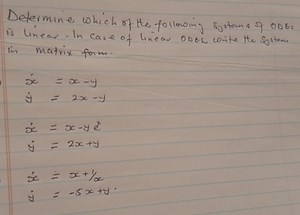 Determine which of the following systems of ODEs
is linear. In case of linear ODEs write the system
in matrix form.
ẋ = x - y
ẏ = 2x - y
ẋ = x - y
ẏ = 2x + y
ẋ = x + 1/x
ẏ = -5x + y.